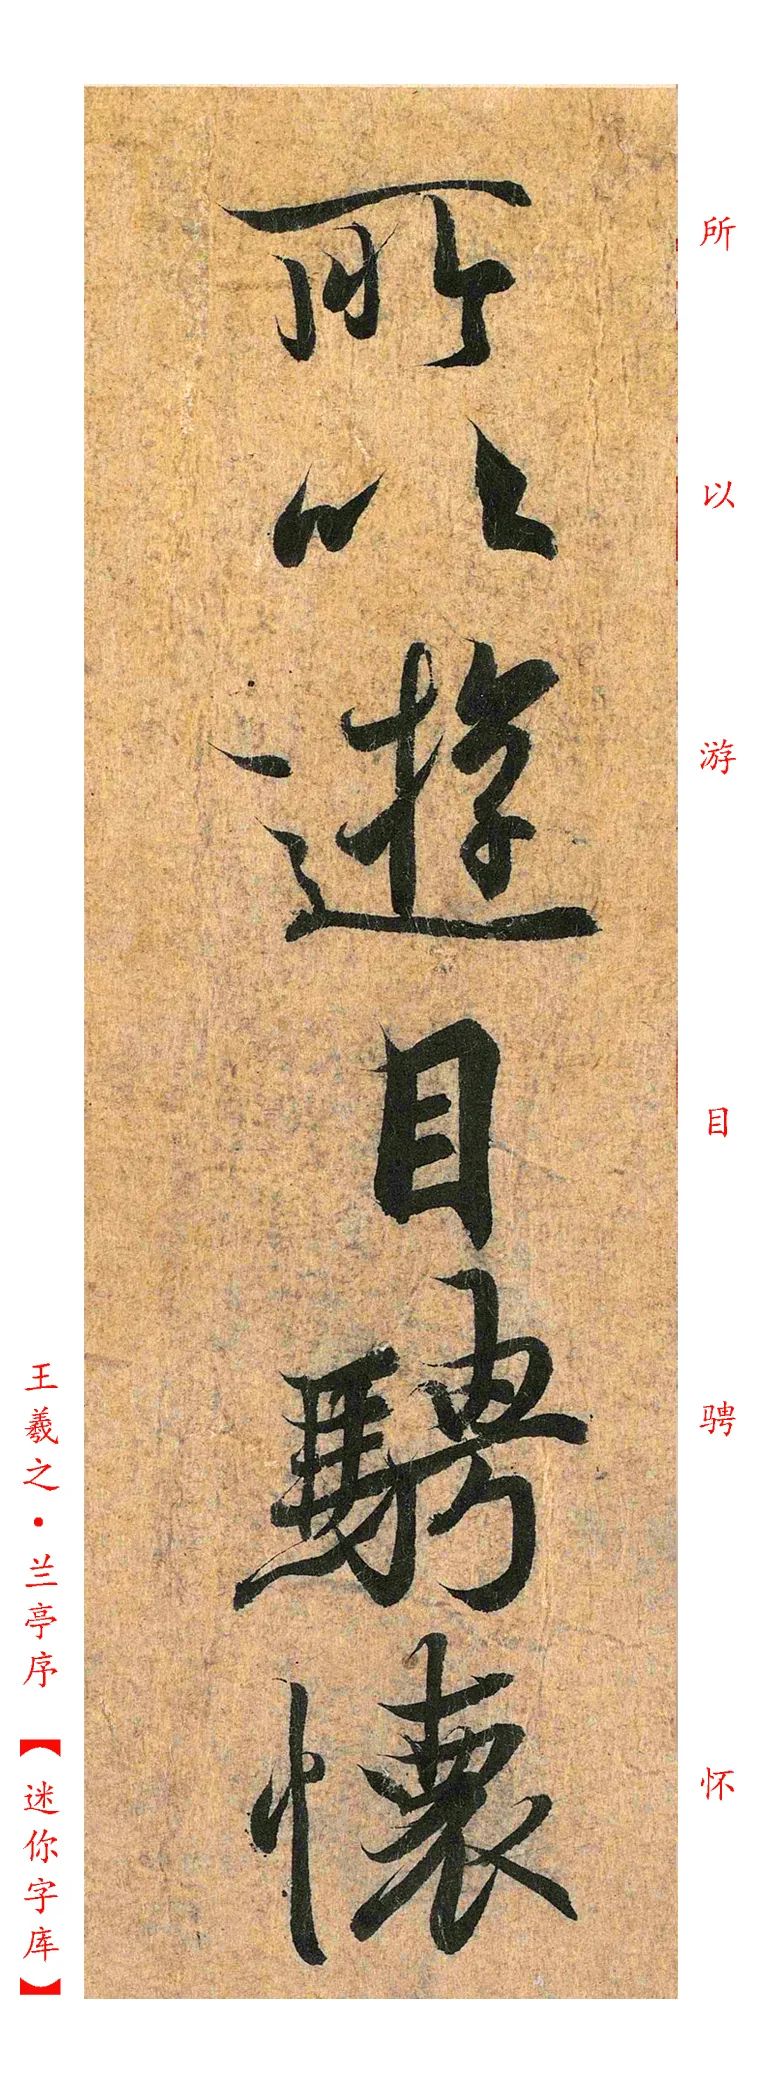 所以遊目騁懷
所
以
游
目
骋
怀
王羲之·兰亭序【迷你字库】